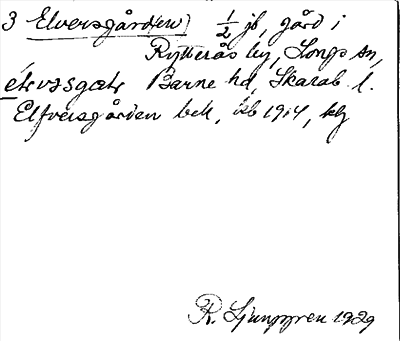 3 Elversgård(en) 1/2 jb, gård i
Rytterås by, Longs sn,
Barne hd, Skarab. l.
Elfversgården bek, 1914,
R. Ljunggren 1929